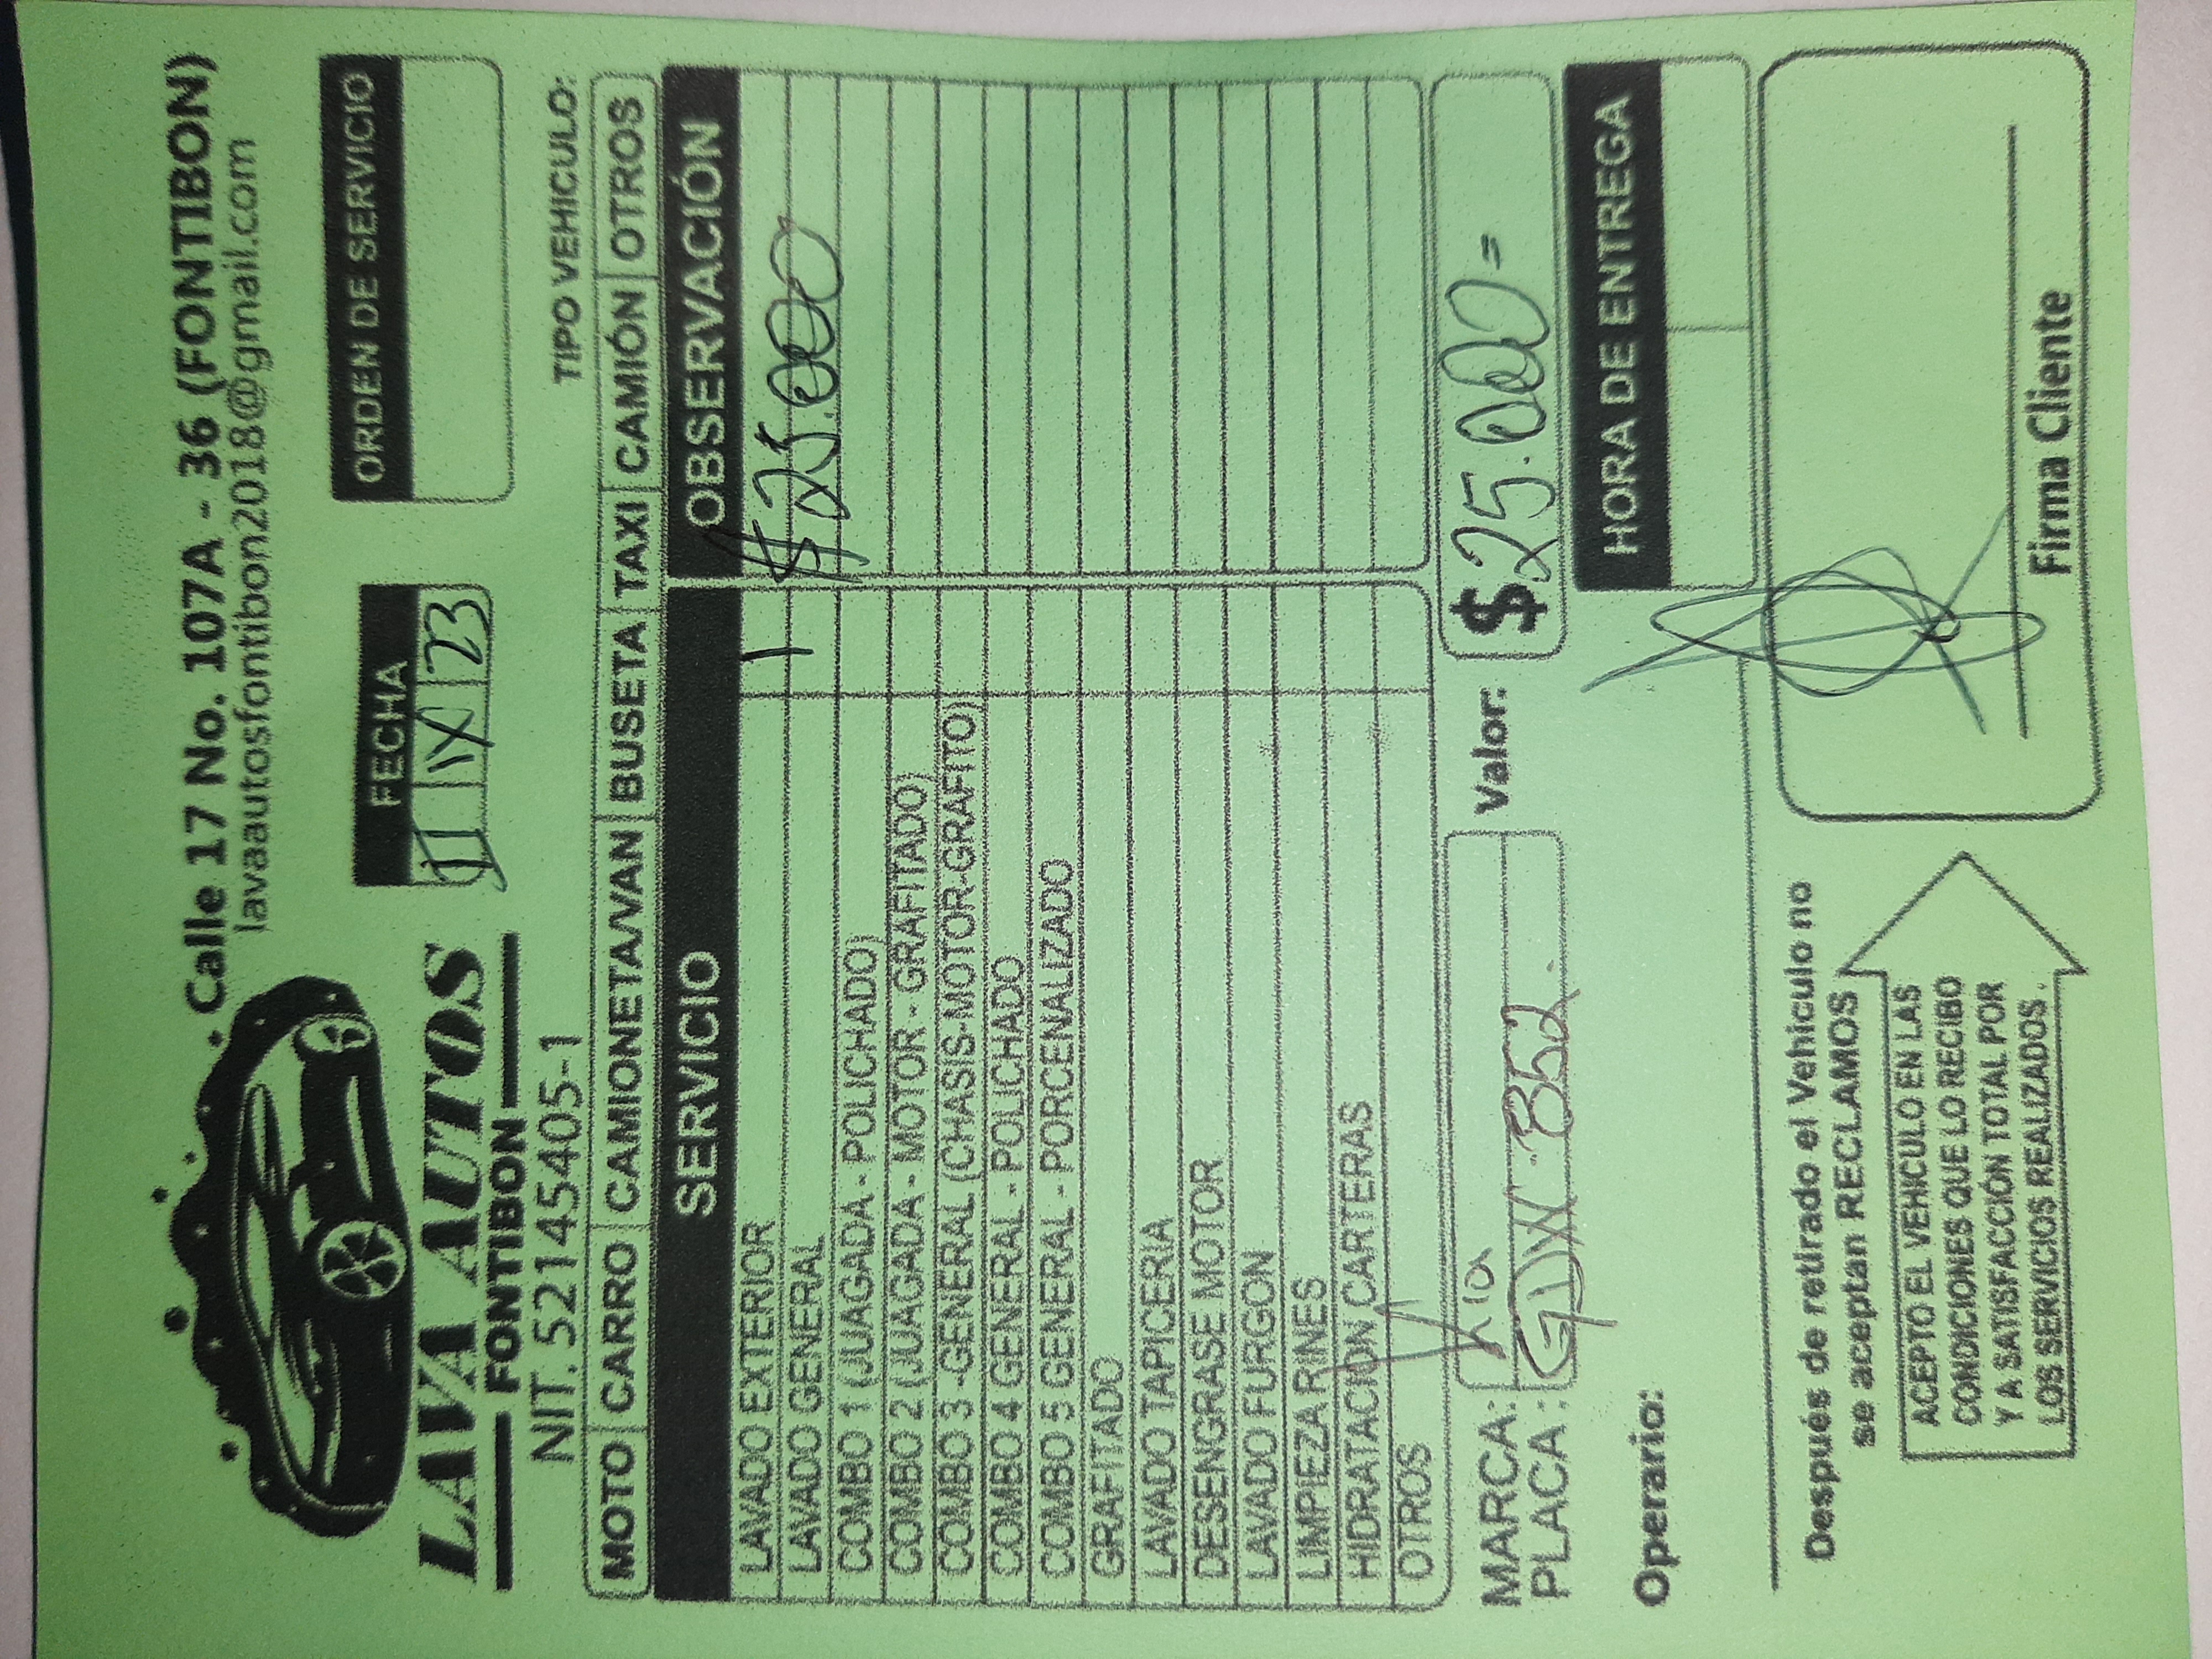 Calle 17 No. 107A - 36 (FONTIBON)
lavaautosfontibon2018@gmail.com
LAVA AUTOS
FONTIBON
NIT. 52145405-1
FECHA
11 IX 23
ORDEN DE SERVICIO
TIPO VEHICULO:
MOTO CARRO CAMIONETA/VAN BUSETA TAXI CAMIÓN OTROS
SERVICIO OBSERVACIÓN
LAVADO EXTERIOR
LAVADO GENERAL
$25.000
COMBO 1 (JUAGADA - POLICHADO)
COMBO 2 (JUAGADA - MOTOR - GRAFITADO)
COMBO 3 -GENERAL (CHASIS-MOTOR-GRAFITO)
COMBO 4 GENERAL - POLICHADO
COMBO 5 GENERAL - PORCENALIZADO
GRAFITADO
LAVADO TAPICERIA
DESENGRASE MOTOR
LAVADO FURGON
LIMPIEZA RINES
HIDRATACION CARTERAS
OTROS
MARCA: Kia
PLACA: GDX-352.
Valor: $25.000=
Operario:
HORA DE ENTREGA
Después de retirado el Vehículo no
se aceptan RECLAMOS
ACEPTO EL VEHICULO EN LAS
CONDICIONES QUE LO RECIBO
Y A SATISFACCIÓN TOTAL POR
LOS SERVICIOS REALIZADOS.
Firma Cliente